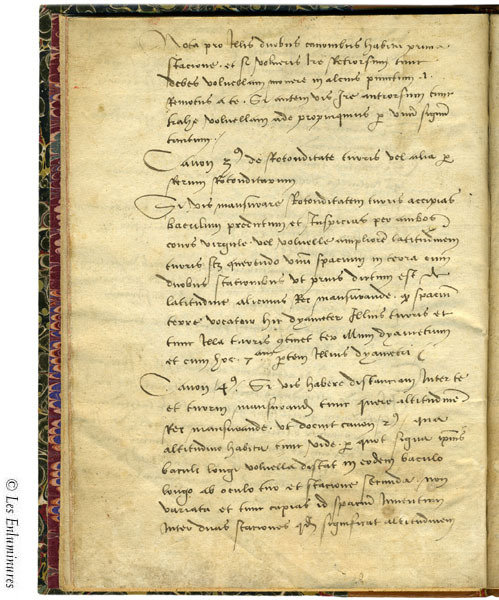 Nota pro illis duobus canonibus habita prima
stacione et si volueris ire retrorsum tunc
debes volvellam movere in alcius punctum .1.
remotius a te. Si autem vis ire antrorsum tunc
trahe volvellam ad te propinquius per unum signum
tantum.
Canon 3us de rotonditate turris vel alia
rerum rotonditatum
Si vis mansurare rotonditatem turris accipias
baculum predictum et inspicias per ambos
conos virgule vel volvelle ampliorem latitudinem
turris, scz querendo unum spacium in terra cum
duobus stationibus ut prius dictum est de
latitudine alicuius rei mansurande. quod spacium
terre vocatur hic dyameter illius turris et
tunc illa turris continet ter illum dyametrum
et cum hoc 7am partem illius dyametri
Canon 4us. Si vis habere distanciam inter te
et turrim mansurandam tunc quere altitudinem
rei mansurande, ut docuit canon 2us. qua
altitudine habita tunc vide per quot signa ipsius
baculi longi volvella distat in eodem baculo
longo ab oculo tuo et stacione secunda, non
variata et tunc capias id spacium inventum
inter duas staciones quod significat altitudinem
© Les Enluminures